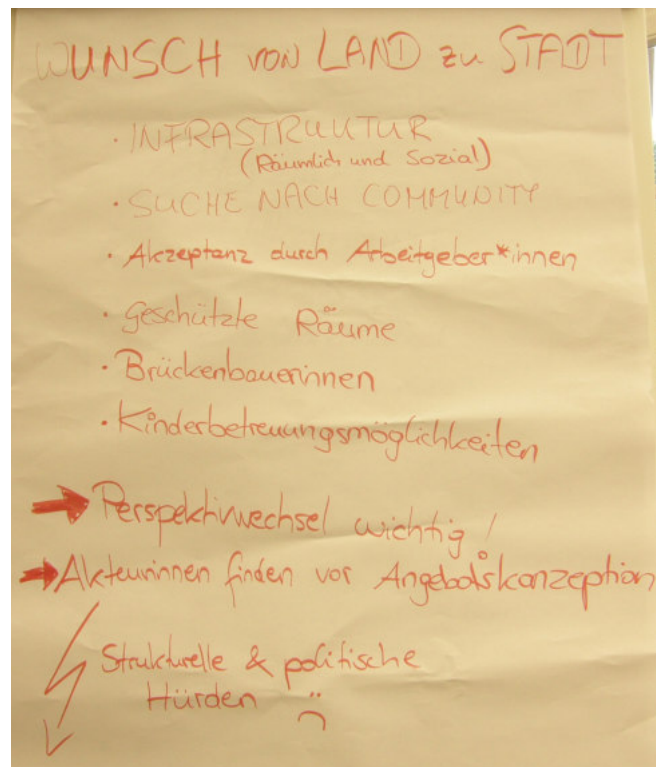 WUNSCH VON LAND zu STADT
· INFRASTRUKTUR
(Räumlich und Sozial)
· SUCHE NACH COMMUNITY
· Akzeptanz durch Arbeitgeber*innen
· Geschützte Räume
· Brückenbauerinnen
· Kinderbetreuungsmöglichkeiten
→ Perspektivwechsel wichtig!
→ Akteurinnen finden vor Angebotskonzeption
Strukturelle & politische
Hürden :(